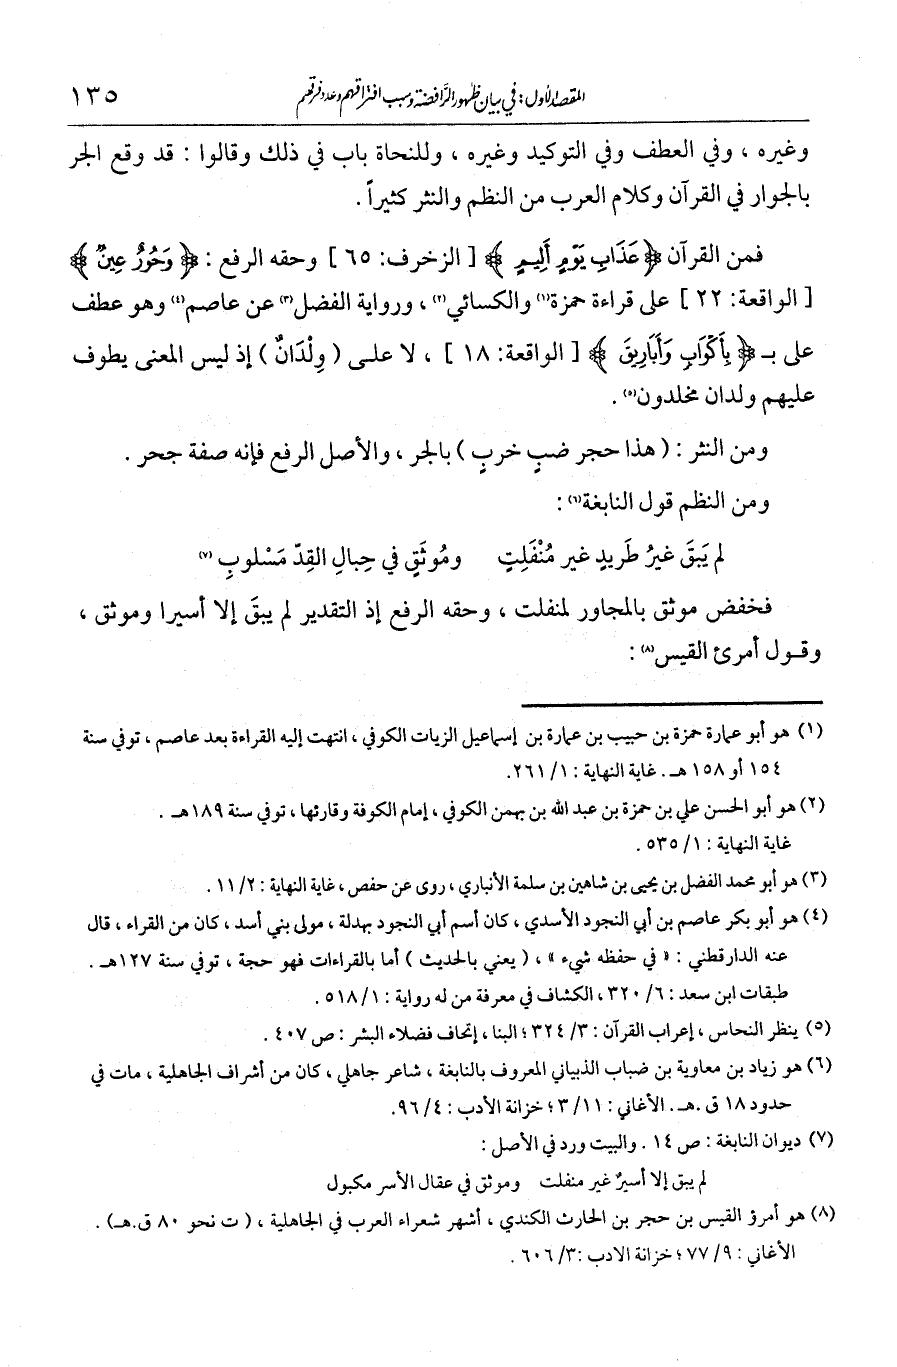 المقصد الأول: في بيان ظهور الرافضة وسبب افتراقهم وعدد فرقهم ١٣٥
وغيره ، وفي العطف وفي التوكيد وغيره ، وللنحاة باب في ذلك وقالوا : قد وقع الجر
بالجوار في القرآن وكلام العرب من النظم والنثر كثيراً .
فمن القرآن ﴿ عَذَابِ يَوْمٍ أَلِيمٍ ﴾ [ الزخرف: ٦٥ ] وحقه الرفع : ﴿ وَحُورٌ عِينٌ ﴾
[ الواقعة: ٢٢ ] على قراءة حمزة(١) والكسائي(٢) ، ورواية الفضل(٣) عن عاصم(٤) وهو عطف
على بـ ﴿ بِأَكْوَابٍ وَأَبَارِيقَ ﴾ [ الواقعة: ١٨ ] ، لا على ( وِلْدَانٌ ) إذ ليس المعنى يطوف
عليهم ولدان مخلدون(٥) .
ومن النثر : ( هذا حجر ضبٍ خربٍ ) بالجر ، والأصل الرفع فإنه صفة جحر .
ومن النظم قول النابغة(٦) :
لم يَبقَ غيرُ طَريدٍ غير مُنْفَلِتٍ ومُوثَقٍ في حِبالِ القِدّ مَسْلوبِ (٧)
فخفض موثق بالمجاور لمنفلت ، وحقه الرفع إذ التقدير لم يبقَ إلا أسيرا وموثق ،
وقول أمرئ القيس(٨) :
(١) هو أبو عمارة حمزة بن حبيب بن عمارة بن إسماعيل الزيات الكوفي ، انتهت إليه القراءة بعد عاصم ، توفي سنة
١٥٤ أو ١٥٨ هـ . غاية النهاية : ١/ ٢٦١.
(٢) هو أبو الحسن علي بن حمزة بن عبد الله بن بهمن الكوفي ، إمام الكوفة وقارئها ، توفي سنة ١٨٩هـ .
غاية النهاية : ١/ ٥٣٥ .
(٣) هو أبو محمد الفضل بن يحيى بن شاهين بن سلمة الأنباري ، روى عن حفص ، غاية النهاية : ٢/ ١١ .
(٤) هو أبو بكر عاصم بن أبي النجود الأسدي ، كان أسم أبي النجود بهدلة ، مولى بني أسد ، كان من القراء ، قال
عنه الدارقطني : « في حفظه شيء » ، ( يعني بالحديث ) أما بالقراءات فهو حجة ، توفي سنة ١٢٧هـ .
طبقات ابن سعد : ٦/ ٣٢٠ ، الكشاف في معرفة من له رواية : ١/ ٥١٨ .
(٥) ينظر النحاس ، إعراب القرآن : ٣/ ٣٢٤ ؛ البنا ، إتحاف فضلاء البشر : ص ٤٠٧ .
(٦) هو زياد بن معاوية بن ضباب الذبياني المعروف بالنابغة ، شاعر جاهلي ، كان من أشراف الجاهلية ، مات في
حدود ١٨ ق .هـ . الأغاني : ١١/ ٣ ؛ خزانة الأدب : ٤/ ٩٦.
(٧) ديوان النابغة : ص ١٤ . والبيت ورد في الأصل :
لم يبق إلا أسيرٌ غير منفلت وموثق في عقال الأسر مكبول
(٨) هو أمرؤ القيس بن حجر بن الحارث الكندي ، أشهر شعراء العرب في الجاهلية ، ( ت نحو ٨٠ ق.هـ) .
الأغاني : ٩/ ٧٧ ؛ خزانة الادب :٣/ ٦٠٦ .